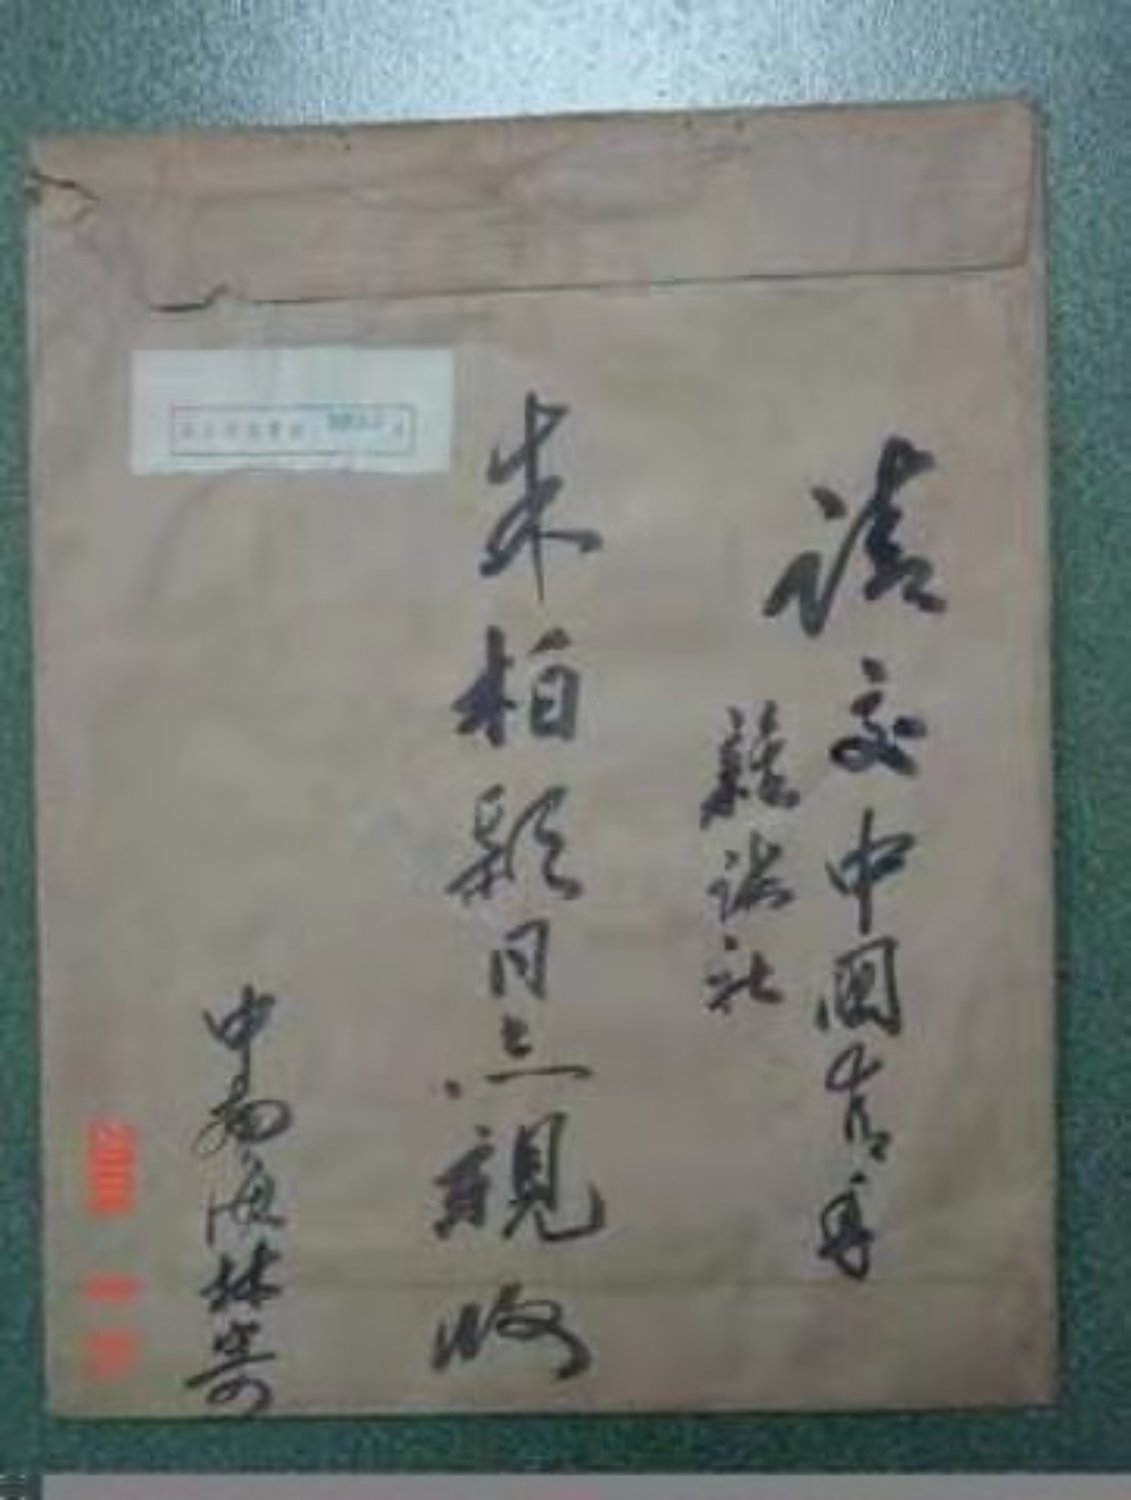 请交中國青年
雜誌社
朱柏颖同志親收
中南海林寄